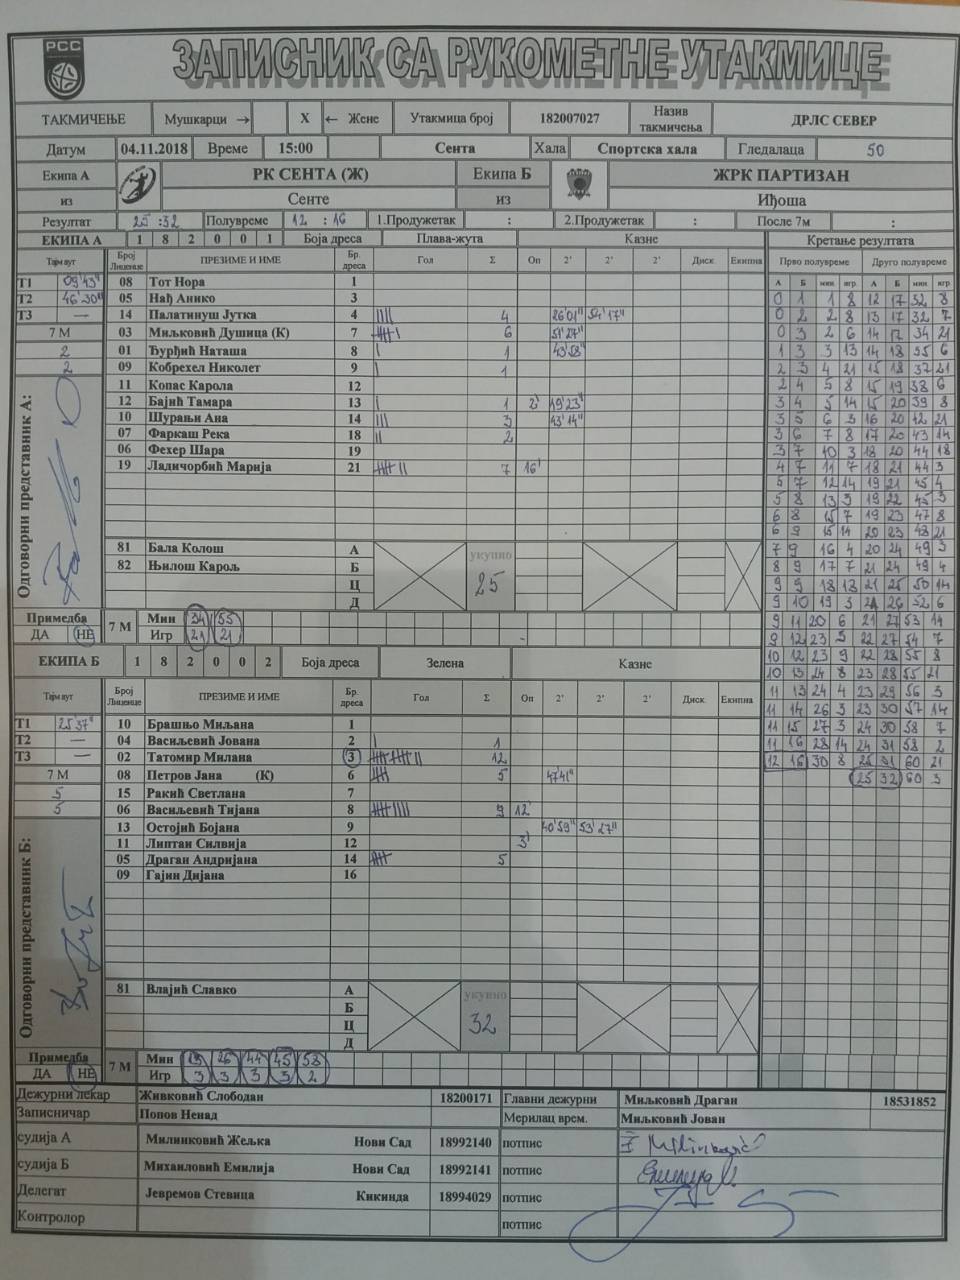 РСС
ЗАПИСНИК СА РУКОМЕТНЕ УТАКМИЦЕ
ТАКМИЧЕЊЕ Мушкарци → X ← Жене Утакмица број 182007027 Назив такмичења ДРЛС СЕВЕР
Датум 04.11.2018 Време 15:00 Сента Хала Спортска хала Гледалаца 50
Екипа А РК СЕНТА (Ж) Екипа Б ЖРК ПАРТИЗАН
из Сенте из Иђоша
Резултат 25 : 32 Полувреме 12 : 16 1.Продужетак : 2.Продужетак : После 7м :
ЕКИПА А 1 8 2 0 0 1 Боја дреса Плава-жута Казне Кретање резултата
Тајм аут Број Лиценце ПРЕЗИМЕ И ИМЕ Бр. дреса Гол Σ Оп 2' 2' 2' Диск. Екипна Прво полувреме Друго полувреме
А Б мин. игр. А Б мин. игр.
Т1 09'43" 08 Тот Нора 1
Т2 46'30" 05 Нађ Анико 3
Т3 — 14 Палатинуш Јутка 4 |||| 4 26'01" 54'17"
7 М 03 Миљковић Душица (К) 7 6 51'27"
2 01 Ђурђић Наташа 8 | 1 43'58"
2 09 Кобрехел Николет 9 | 1
11 Копас Карола 12
12 Бајић Тамара 13 | 1 2' 19'23"
10 Шурањи Ана 14 ||| 3 43'14"
07 Фаркаш Река 18 || 2
06 Фехер Шара 19
19 Ладичорбић Марија 21 7 16'
Одговорни представник А:
81 Бала Колош А укупно 25
82 Њилош Карољ Б
Ц
Д
Примедба ДА НЕ 7 М Мин 34 55
Игр 21 21
0 1 1 8 12 17 32 8
0 2 2 8 13 17 32 7
0 3 2 6 14 17 34 21
1 3 3 13 14 18 35 6
2 3 4 21 15 18 37 21
2 4 5 8 15 19 38 6
3 4 5 14 15 20 39 8
3 5 6 3 16 20 12 21
3 6 7 8 17 20 43 14
3 7 10 3 18 20 44 18
4 7 11 7 18 21 44 3
5 7 12 14 19 21 45 4
5 8 13 3 19 22 45 3
6 8 15 7 19 23 47 8
6 9 15 14 20 23 48 21
7 9 16 4 20 24 49 3
8 9 17 7 21 24 49 4
9 9 18 18 21 25 50 14
9 10 19 3 21 26 52 6
9 11 20 6 21 27 53 14
9 12 23 3 22 27 54 7
10 12 23 9 22 28 55 8
10 13 24 8 23 28 55 21
11 13 24 4 23 29 56 3
11 14 26 3 23 30 57 14
11 15 27 3 24 30 58 7
11 16 28 14 24 31 58 2
12 16 30 8 25 31 60 21
25 32 60 3
ЕКИПА Б 1 8 2 0 0 2 Боја дреса Зелена Казне
Тајм аут Број Лиценце ПРЕЗИМЕ И ИМЕ Бр. дреса Гол Σ Оп 2' 2' 2' Диск. Екипна
Т1 25'37" 10 Брашњо Миљана 1
Т2 — 04 Васиљевић Јована 2 | 1
Т3 — 02 Татомир Милана 3 12
7 М 08 Петров Јана (К) 6 5 47'41"
5 15 Ракић Светлана 7
5 06 Васиљевић Тијана 8 9 12'
13 Остојић Бојана 9 40'59" 53'27"
11 Липтан Силвија 12 3'
05 Драган Андријана 14 5
09 Гајин Дијана 16
Одговорни представник Б:
81 Влајић Славко А укупно 32
Б
Ц
Д
Примедба ДА НЕ 7 М Мин 13 26 44 45 58
Игр 3 3 3 3 2
Дежурни лекар Живковић Слободан 18200171 Главни дежурни Миљковић Драган 18531852
Записничар Попов Ненад Мерилац врем. Миљковић Јован
судија А Милинковић Жељка Нови Сад 18992140 потпис
судија Б Михаиловић Емилија Нови Сад 18992141 потпис
Делегат Јевремов Стевица Кикинда 18994029 потпис
Контролор потпис